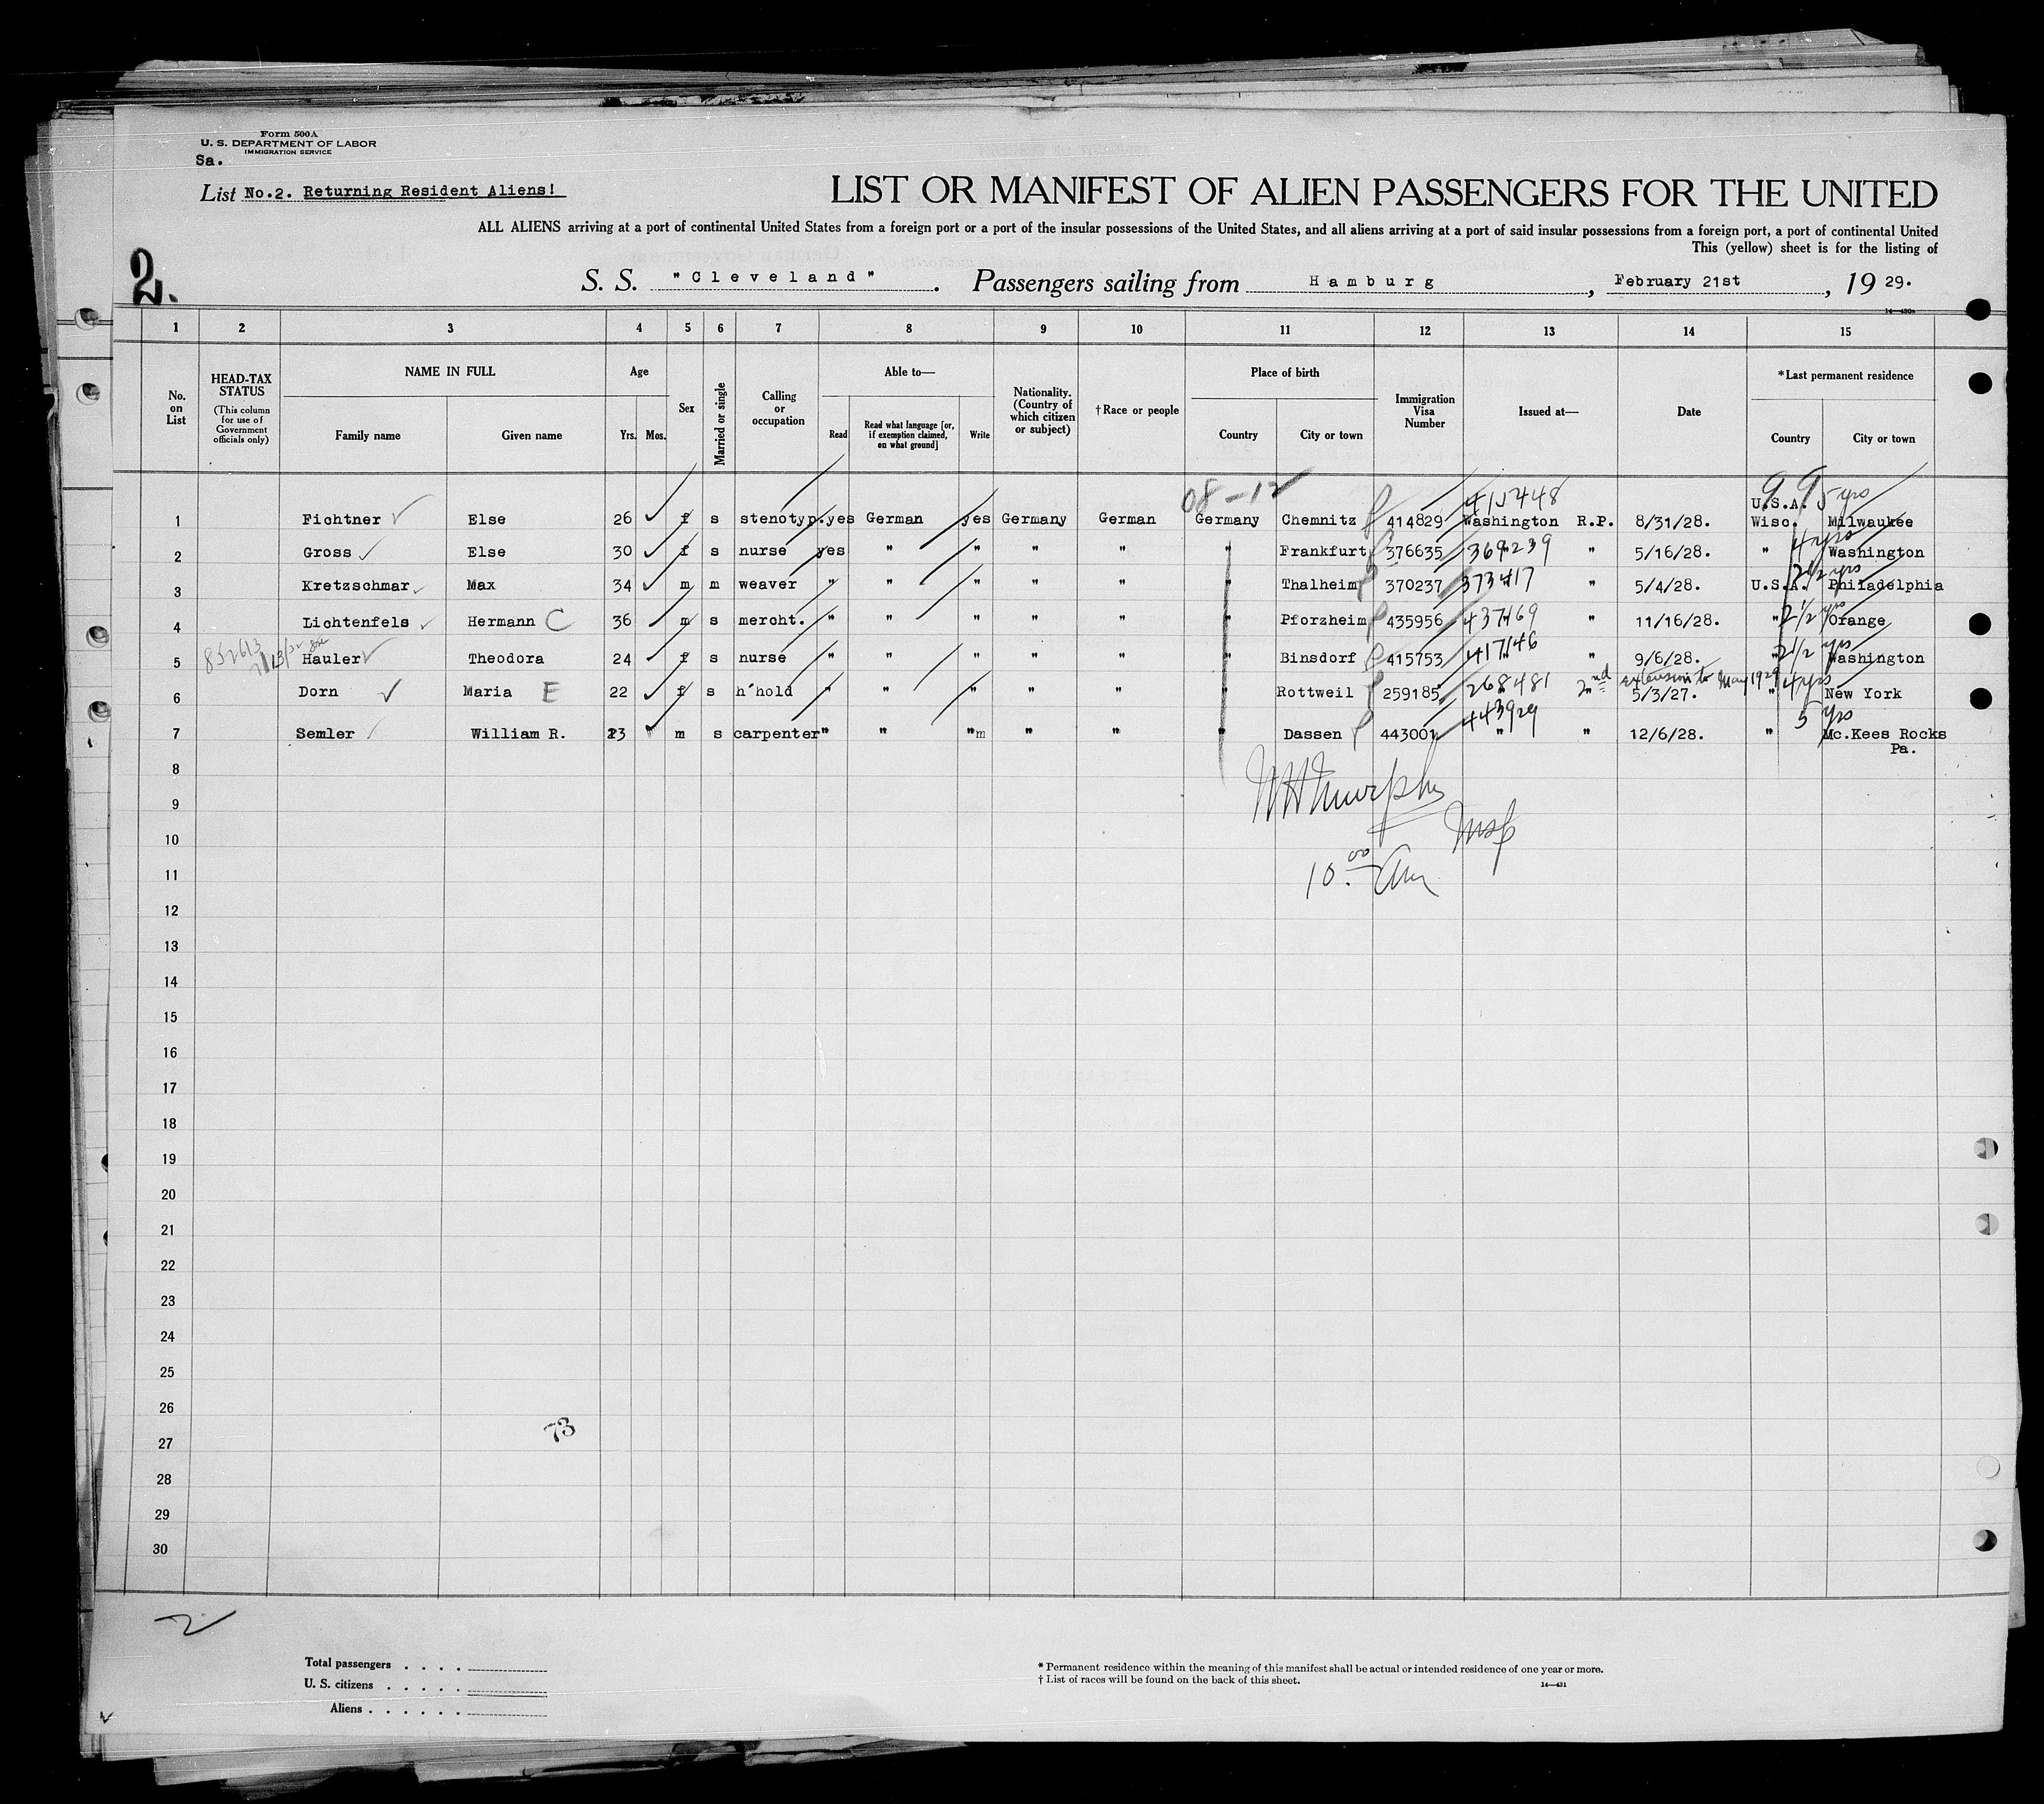 Form 500A
U. S. DEPARTMENT OF LABOR
IMMIGRATION SERVICE
Sa.
List No.2. Returning Resident Aliens!
LIST OR MANIFEST OF ALIEN PASSENGERS FOR THE UNITED
ALL ALIENS arriving at a port of continental United States from a foreign port or a port of the insular possessions of the United States, and all aliens arriving at a port of said insular possessions from a foreign port, a port of continental United
This (yellow) sheet is for the listing of
2.
S. S. "Cleveland". Passengers sailing from Hamburg, February 21st, 19 29.
1 2 3 4 5 6 7 8 9 10 11 12 13 14 15
No. on List
HEAD-TAX STATUS (This column for use of Government officials only)
NAME IN FULL Family name Given name
Age Yrs. Mos.
Sex
Married or single
Calling or occupation
Able to— Read Read what language [or, if exemption claimed, on what ground] Write
Nationality. (Country of which citizen or subject)
† Race or people
Place of birth Country City or town
Immigration Visa Number
Issued at—
Date
*Last permanent residence Country City or town
08-12 415448 U.S.A. 5 yrs
1 Fichtner Else 26 f s stenotyp. yes German yes Germany German Germany Chemnitz 414829 Washington R.P. 8/31/28. Wisc. Milwaukee
4 yrs
2 Gross Else 30 f s nurse yes " " " " " Frankfurt 376635 369239 " 5/16/28. " Washington
2 1/2 yrs
3 Kretzschmar Max 34 m m weaver " " " " " " Thalheim 370237 373417 " 5/4/28. U.S.A. Philadelphia
4 Lichtenfels Hermann C 36 m s mercht. " " " " " " Pforzheim 435956 437469 " 11/16/28. " 2 1/2 yrs Orange
852613
5 Hauler Theodora 24 f s nurse " " " " " " Binsdorf 415753 417146 " 9/6/28. " 2 1/2 yrs Washington
2nd extension to May 1929
6 Dorn Maria E 22 f s h'hold " " " " " " Rottweil 259185 268481 " 5/3/27. " 4 yrs New York
5 yrs
7 Semler William R. 23 m s carpenter " " "m " " " Dassen 443001 443929 " " 12/6/28. " Mc.Kees Rocks
Pa.
8
W H Murphy
9
Insp
10
10.00 Am
11
12
13
14
15
16
17
18
19
20
21
22
23
24
25
26
73
27
28
29
30
2
Total passengers . . . .
U. S. citizens . . . . .
Aliens . . . . . .
* Permanent residence within the meaning of this manifest shall be actual or intended residence of one year or more.
† List of races will be found on the back of this sheet.
14—431